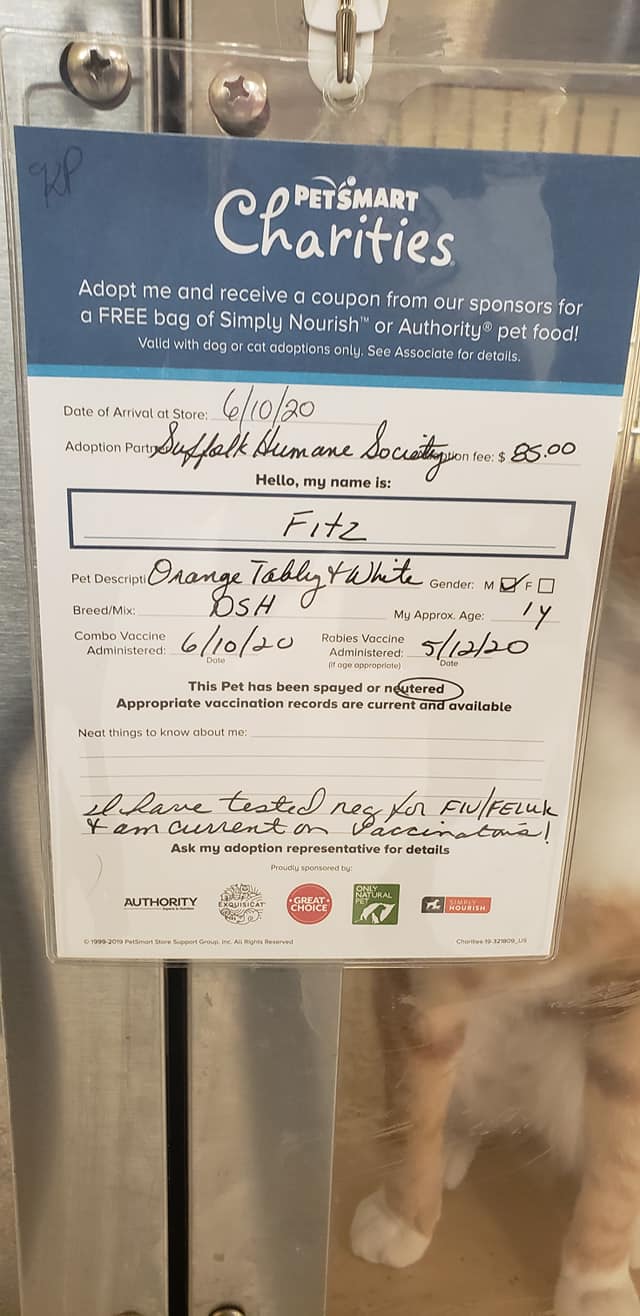 KP
PETSMART
Charities
Adopt me and receive a coupon from our sponsors for
a FREE bag of Simply Nourish™ or Authority® pet food!
Valid with dog or cat adoptions only. See Associate for details.
Date of Arrival at Store: 6/10/20
Adoption Partn Suffolk Humane Society ption fee: $ 85.00
Hello, my name is:
Fitz
Pet Descripti Orange Tabby & White Gender: M ☑ F ☐
Breed/Mix: DSH My Approx. Age: 1y
Combo Vaccine Administered: 6/10/20 Date Rabies Vaccine Administered: (if age appropriate) 5/12/20 Date
This Pet has been spayed or neutered
Appropriate vaccination records are current and available
Neat things to know about me:
I have tested neg for FIV/FELUK
& am current on Vaccinations!
Ask my adoption representative for details
Proudly sponsored by:
AUTHORITY EXQUISICAT GREAT CHOICE ONLY NATURAL PET SIMPLY NOURISH
© 1999-2019 PetSmart Store Support Group, Inc. All Rights Reserved Charities-19-321809_US